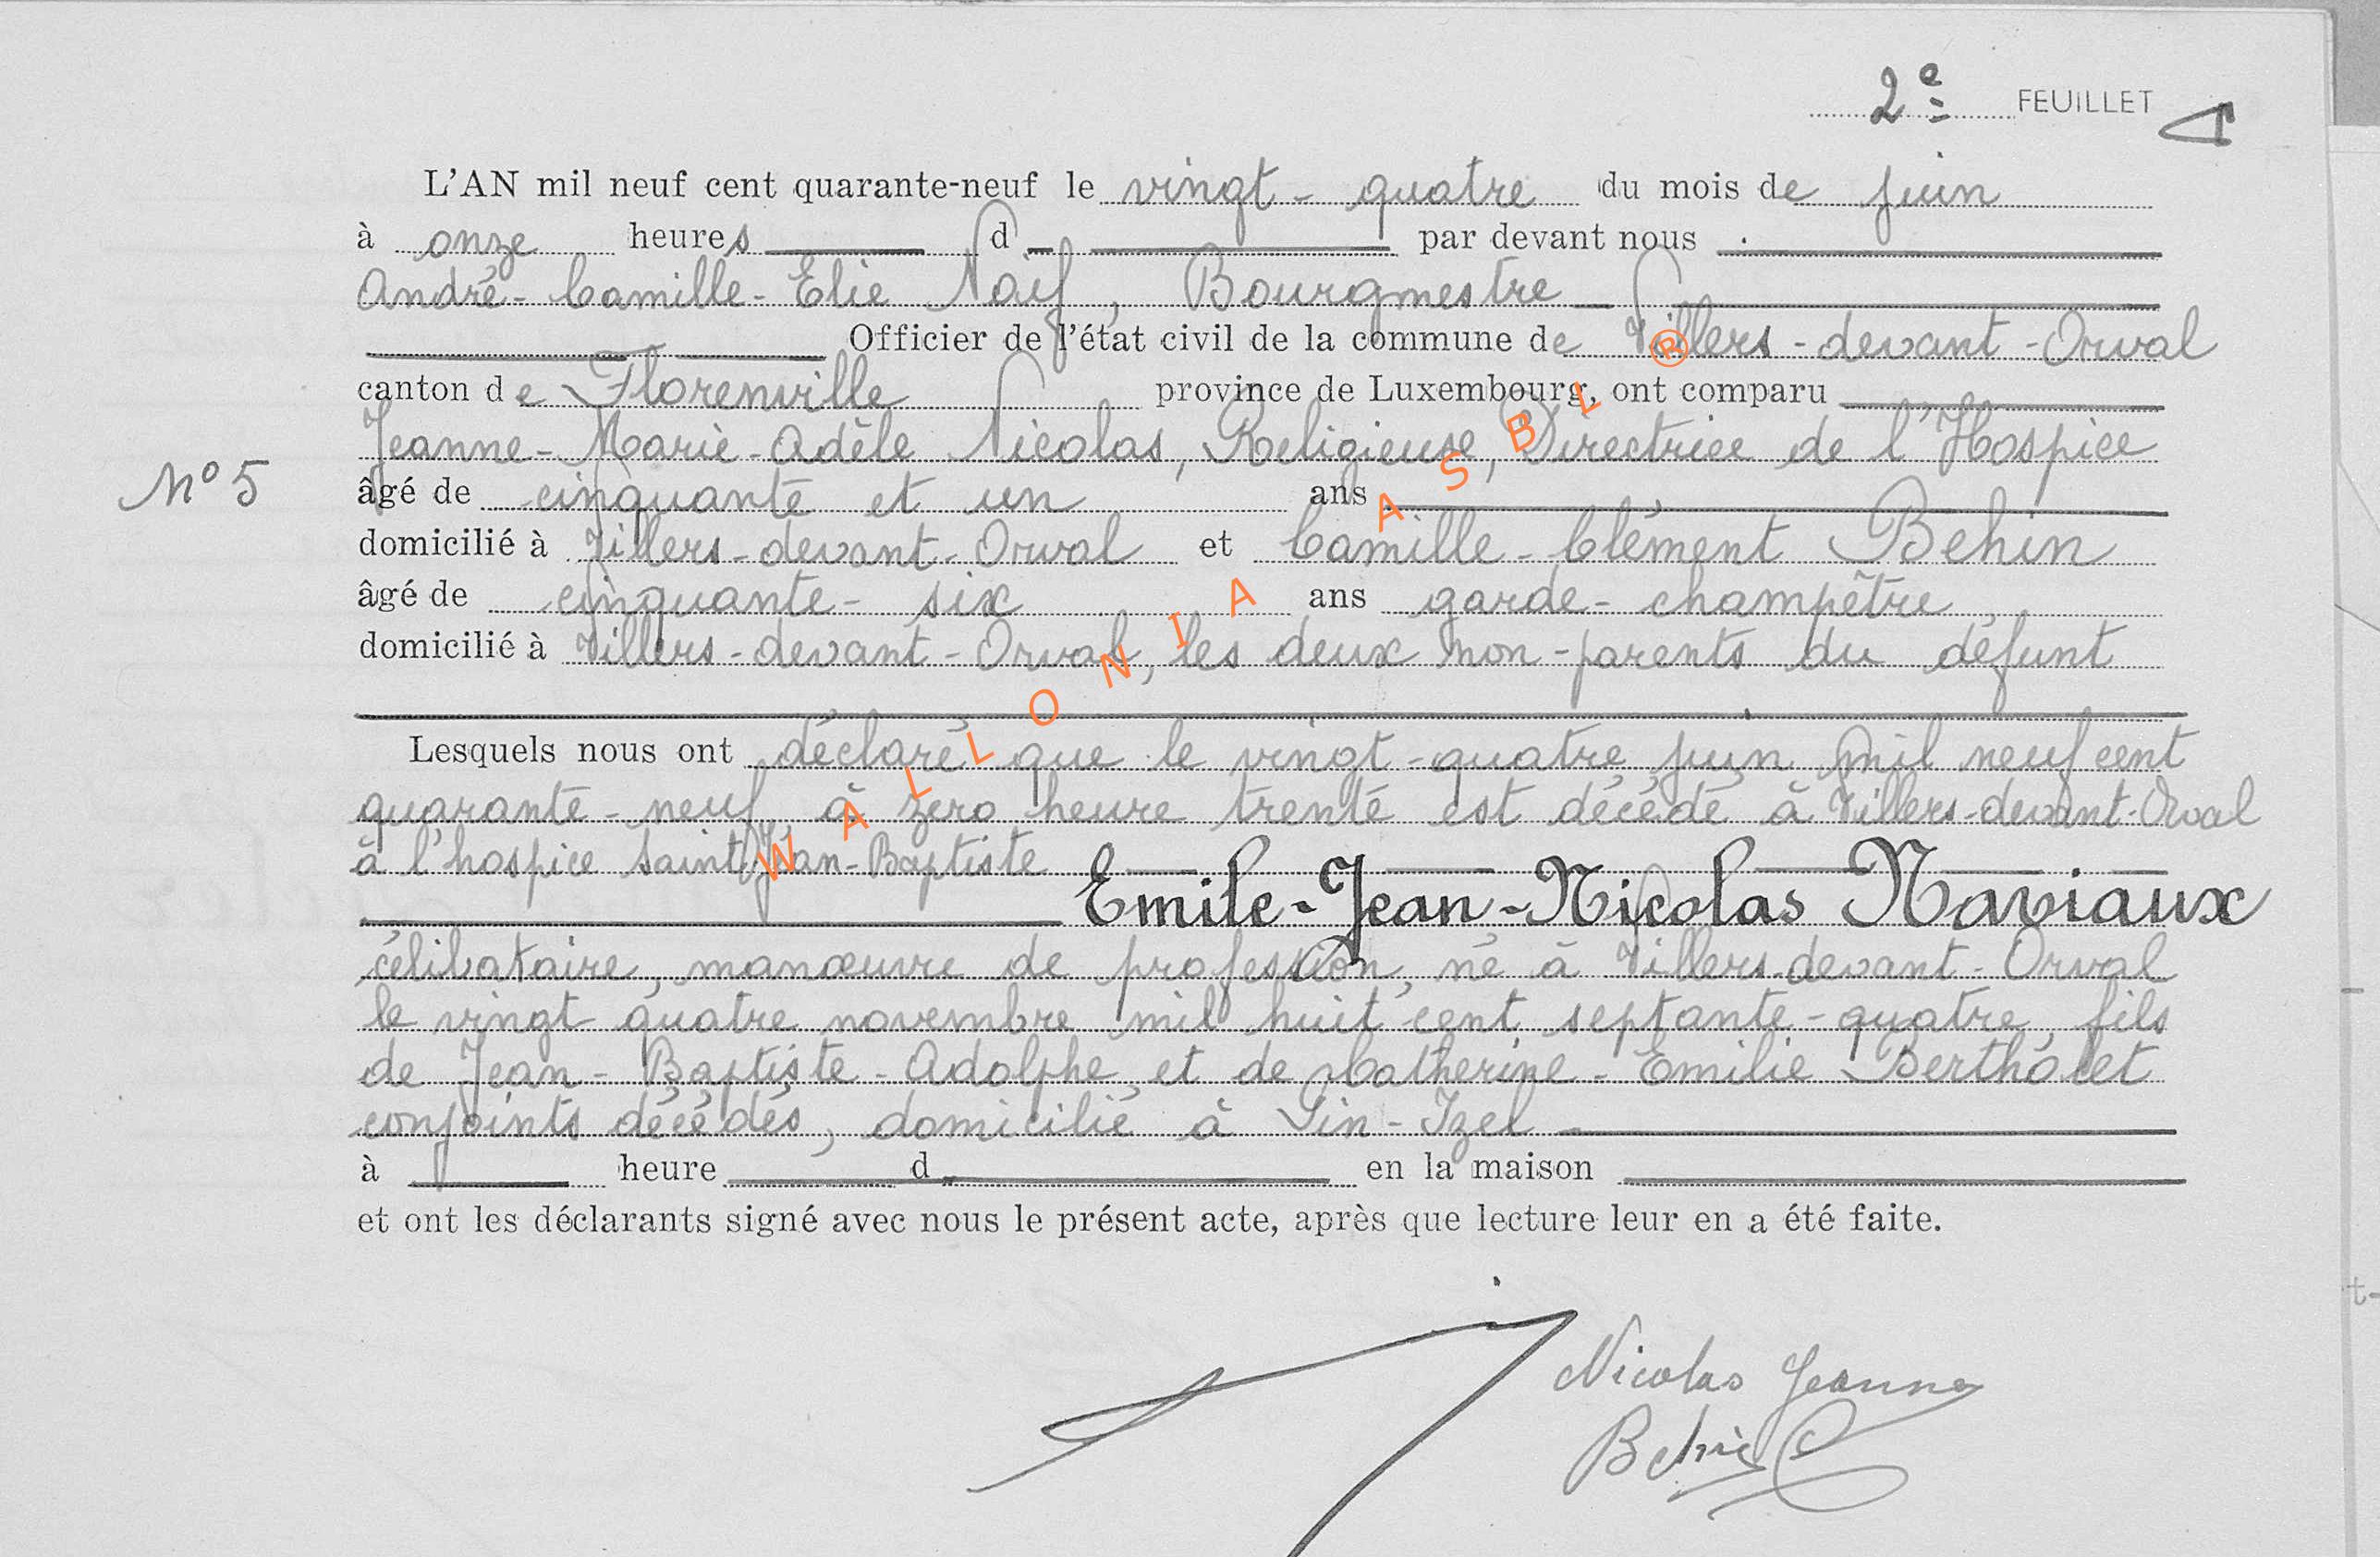 2e FEUILLET
L'AN mil neuf cent quarante-neuf le vingt-quatre du mois de juin
à onze heures d par devant nous
André-Camille-Elie Naif, Bourgmestre
Officier de l'état civil de la commune de Villers-devant-Orval
canton de Florenville province de Luxembourg, ont comparu
Jeanne-Marie-Adèle Nicolas, Religieuse, Directrice de l'Hospice
N° 5 âgé de cinquante et un ans
domicilié à Villers-devant-Orval et Camille-Clément Behin
âgé de cinquante-six ans garde-champêtre,
domicilié à Villers-devant-Orval, les deux non-parents du défunt
Lesquels nous ont déclaré que le vingt-quatre juin mil neuf cent
quarante-neuf, à zéro heure trente est décédé à Villers-devant-Orval
à l'hospice Saint Jean-Baptiste
Emile-Jean-Nicolas Naviaux
célibataire, manœuvre de profession, né à Villers-devant-Orval
le vingt quatre novembre mil huit cent septante-quatre, fils
de Jean-Baptiste-Adolphe, et de Catherine-Emilie Bertholet
conjoints décédés, domicilié à Pin-Izel
à heure d en la maison
et ont les déclarants signé avec nous le présent acte, après que lecture leur en a été faite.
Nicolas Jeanne
Behin C
WALLONIA ASBL ®